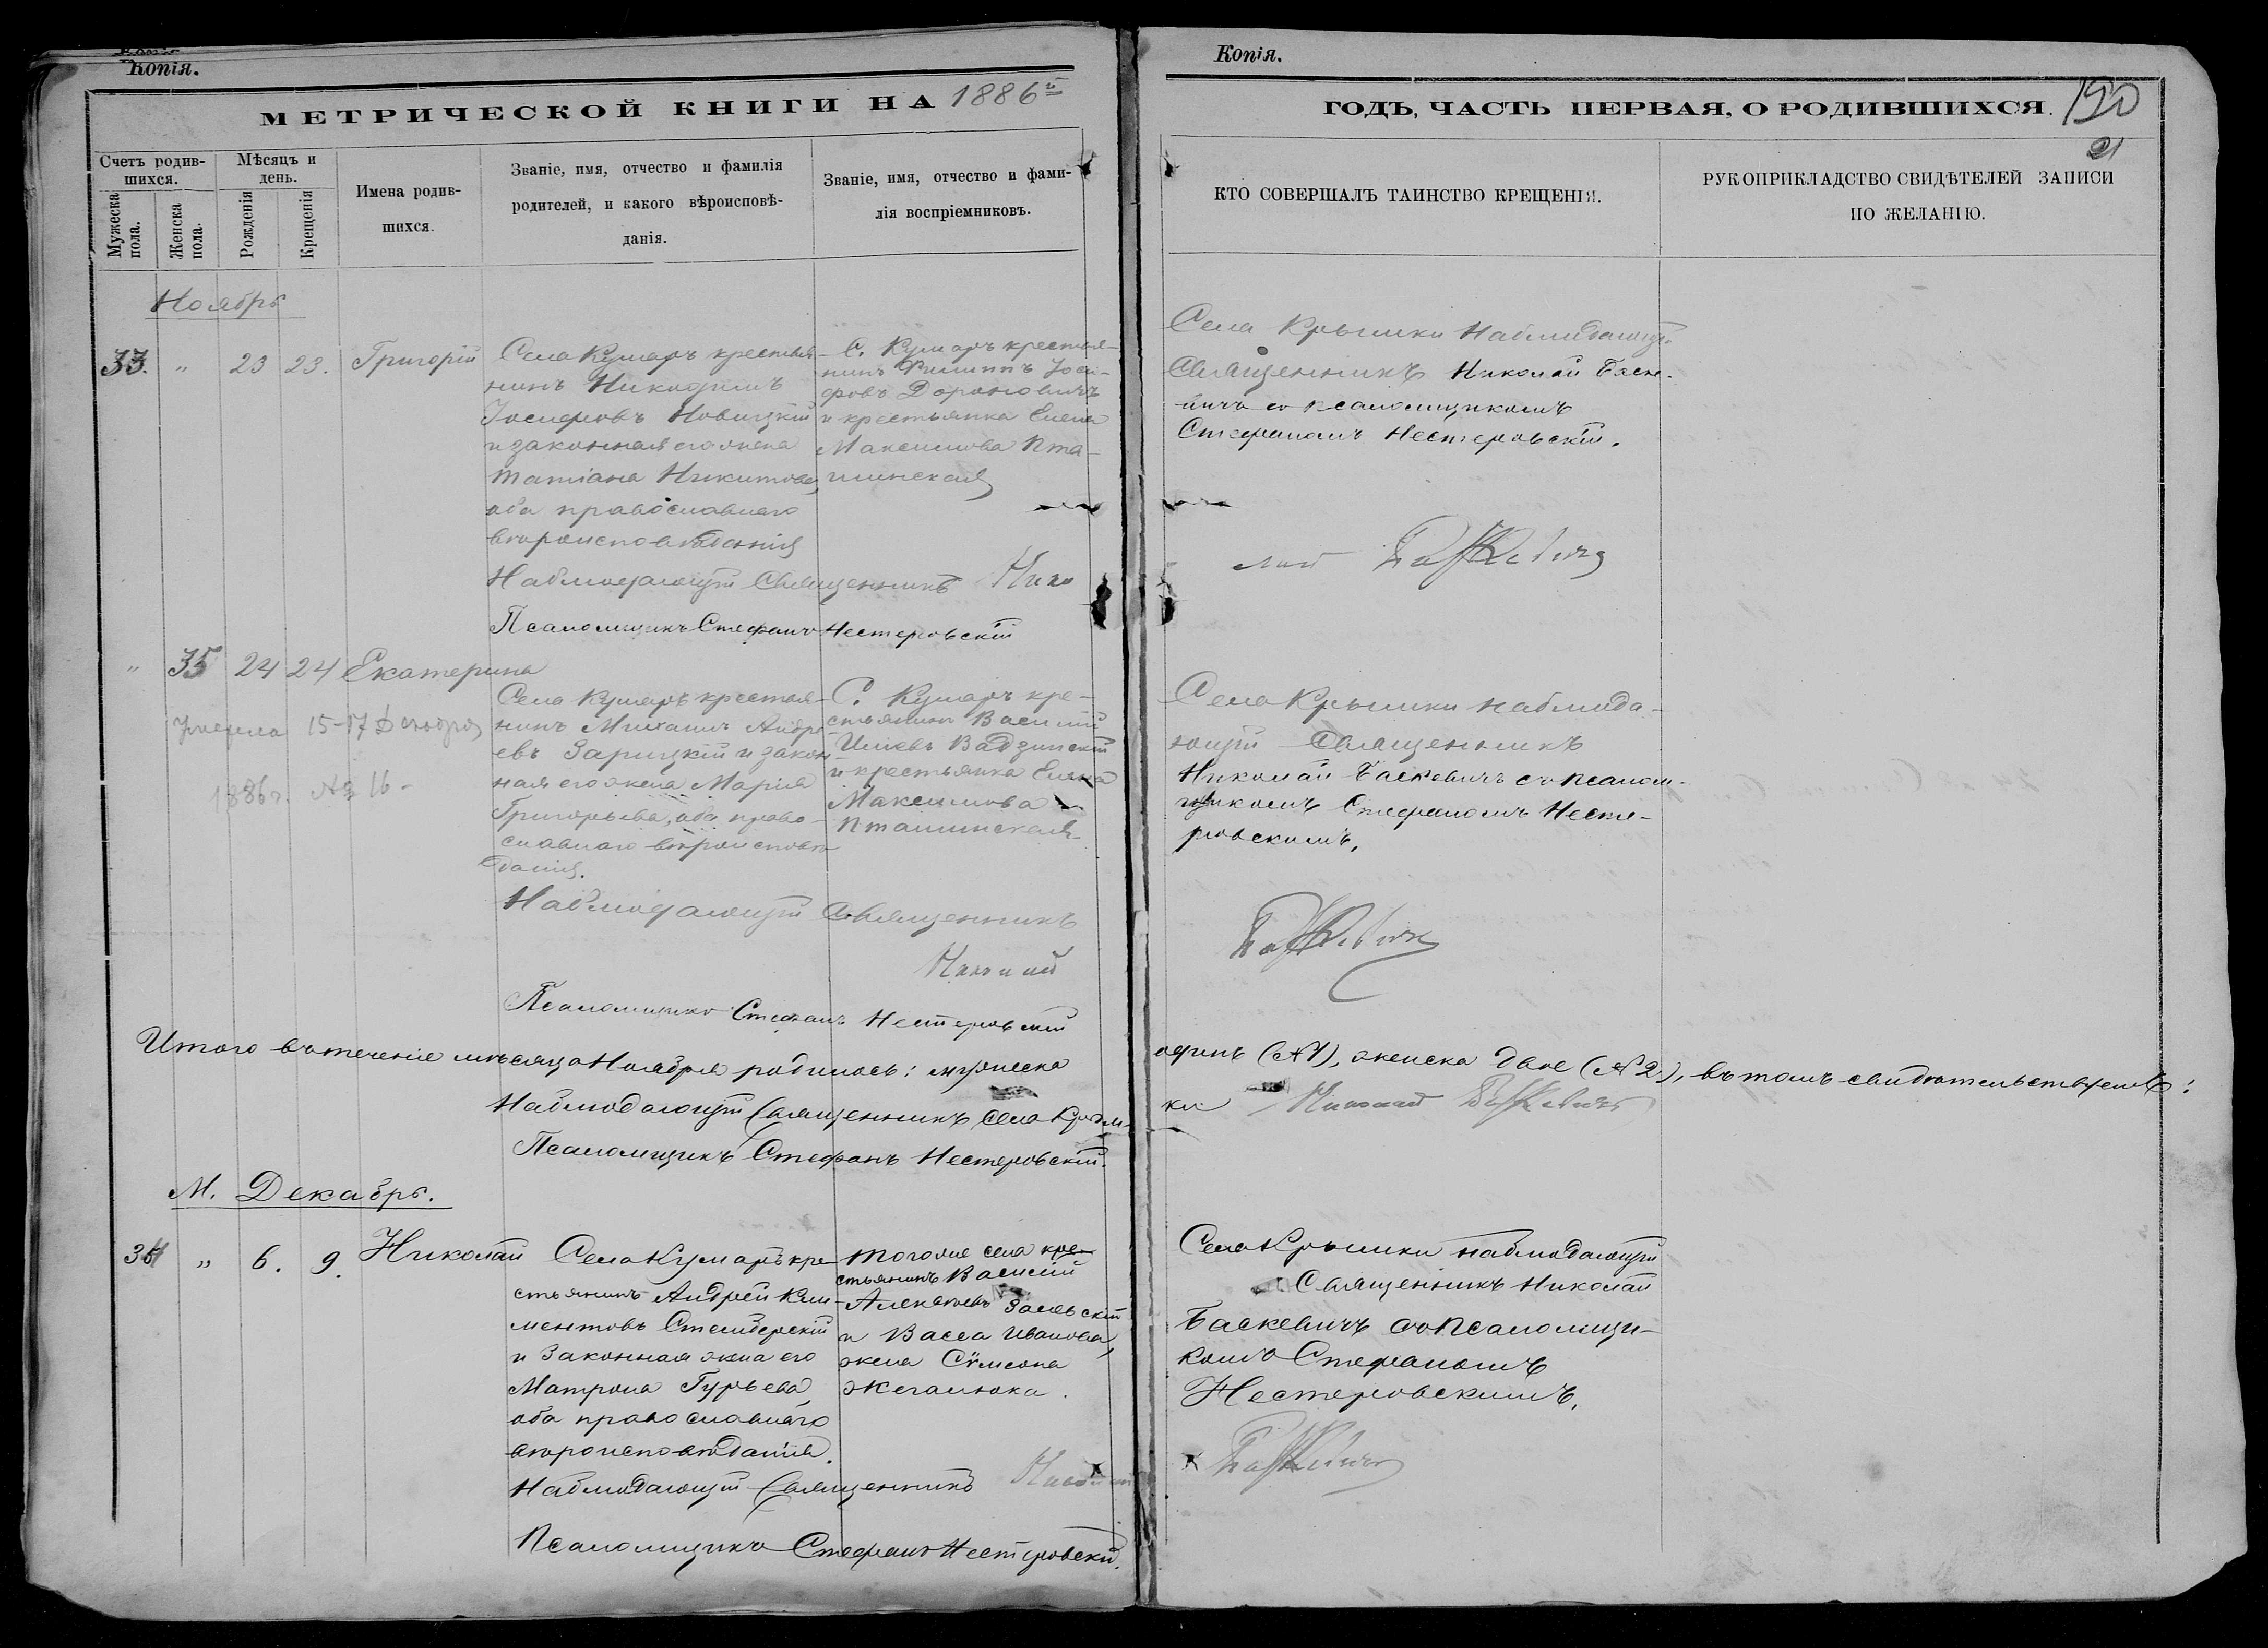 Копія.
Копія.
МЕТРИЧЕСКОЙ КНИГИ НА 1886й
Счетъ родив-
шихся.
Мужеска
пола.
Женска
пола.
Мѣсяцъ и
день.
Рожденія
Крещенія
Имена родив-
шихся.
Званіе, имя, отчество и фамилія
родителей, и какого вѣроисповѣ-
данія.
Званіе, имя, отчество и фами-
лія воспріемниковъ.
Ноябрь
33. " 23 23. Григорій
Села Кумаръ крестья-
нинъ Никодимъ
Іосифовъ Новицкій
и законная его жена
Татіана Никитова,
оба православнаго
вѣроисповѣданія
С. Кумаръ крестья-
нинъ Филиппъ Іоси-
фовъ Дороновичъ
и крестьянка Елена
Максимова Пта-
шинская
Наблюдающій Священникъ Нико
Псаломщикъ Стефанъ Нестеровскій
" 35 24 24 Екатерина
Умерла 15-17 Декабря
1886 г. № 16-
Села Кумаръ крестья-
нинъ Михаилъ Андре-
евъ Зарицкій и закон-
ная его жена Марія
Григорьева, оба право-
славнаго вѣроисповѣ-
данія.
С. Кумаръ кре-
стьянинъ Василій
Вадзинскій
и крестьянка Елена
Максимова
Пташинская
Наблюдающій Священникъ
Николай
Псаломщикъ Стефанъ Нестеровскій
Итого въ теченіе мѣсяца Ноября родилось: мужеска
Наблюдающій Священникъ села Крым-
Псаломщикъ Стефанъ Нестеровскій.
М. Декабрь.
34 " 6. 9. Николай
Села Кумаръ кре-
стьянинъ Андрей Кли-
ментовъ Стемберскій
и Законная жена его
Матрона Гурьева,
оба православнаго
вѣроисповѣданія.
Тогоже села кре-
стьянинъ Василій
Алексѣевъ Залевскій
и Васса Иванова,
жена Сѵмеона
Жегалюка.
Наблюдающій Священникъ Николай
Псаломщикъ Стефанъ Нестеровскій.
Копія.
ГОДЪ, ЧАСТЬ ПЕРВАЯ, О РОДИВШИХСЯ. 190
21
КТО СОВЕРШАЛЪ ТАИНСТВО КРЕЩЕНІЯ.
РУКОПРИКЛАДСТВО СВИДѢТЕЛЕЙ ЗАПИСИ
ПО ЖЕЛАНІЮ.
Села Крымки Наблюдающій
Священникъ Николай Баске-
вичъ со псаломщикомъ
Стефаномъ Нестеровскій.
лай Баскевичъ
Села Крымки наблюда-
ющій Священникъ
Николай Баскевичъ со псалом-
щикомъ Стефаномъ Несте-
ровскимъ.
Баскевичъ
одинъ (№ 1), женска двое (№ 2), въ томъ свидѣтельствуемъ:
ки Николай Баскевичъ
Села Крымки наблюдающій
Священникъ Николай
Баскевичъ со Псаломщи-
комъ Стефаномъ
Нестеровскимъ.
Баскевичъ